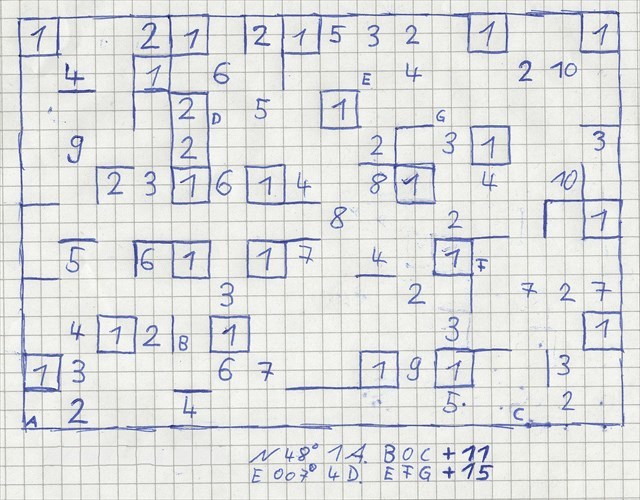 1 2 1 2 1 5 3 2 1 1
4 1 6 E 4 2 10
2 D 5 1 G
9 2 2 3 1 3
2 3 1 6 1 4 8 1 4 10
8 2 1
5 6 1 1 7 4 1 F
3 2 7 2 7
4 1 2 B 1 3 1
1 3 6 7 1 9 1 3
A 2 4 5 C 2
N 48° 1A. B0C +11
E 007° 4D. EFG +15